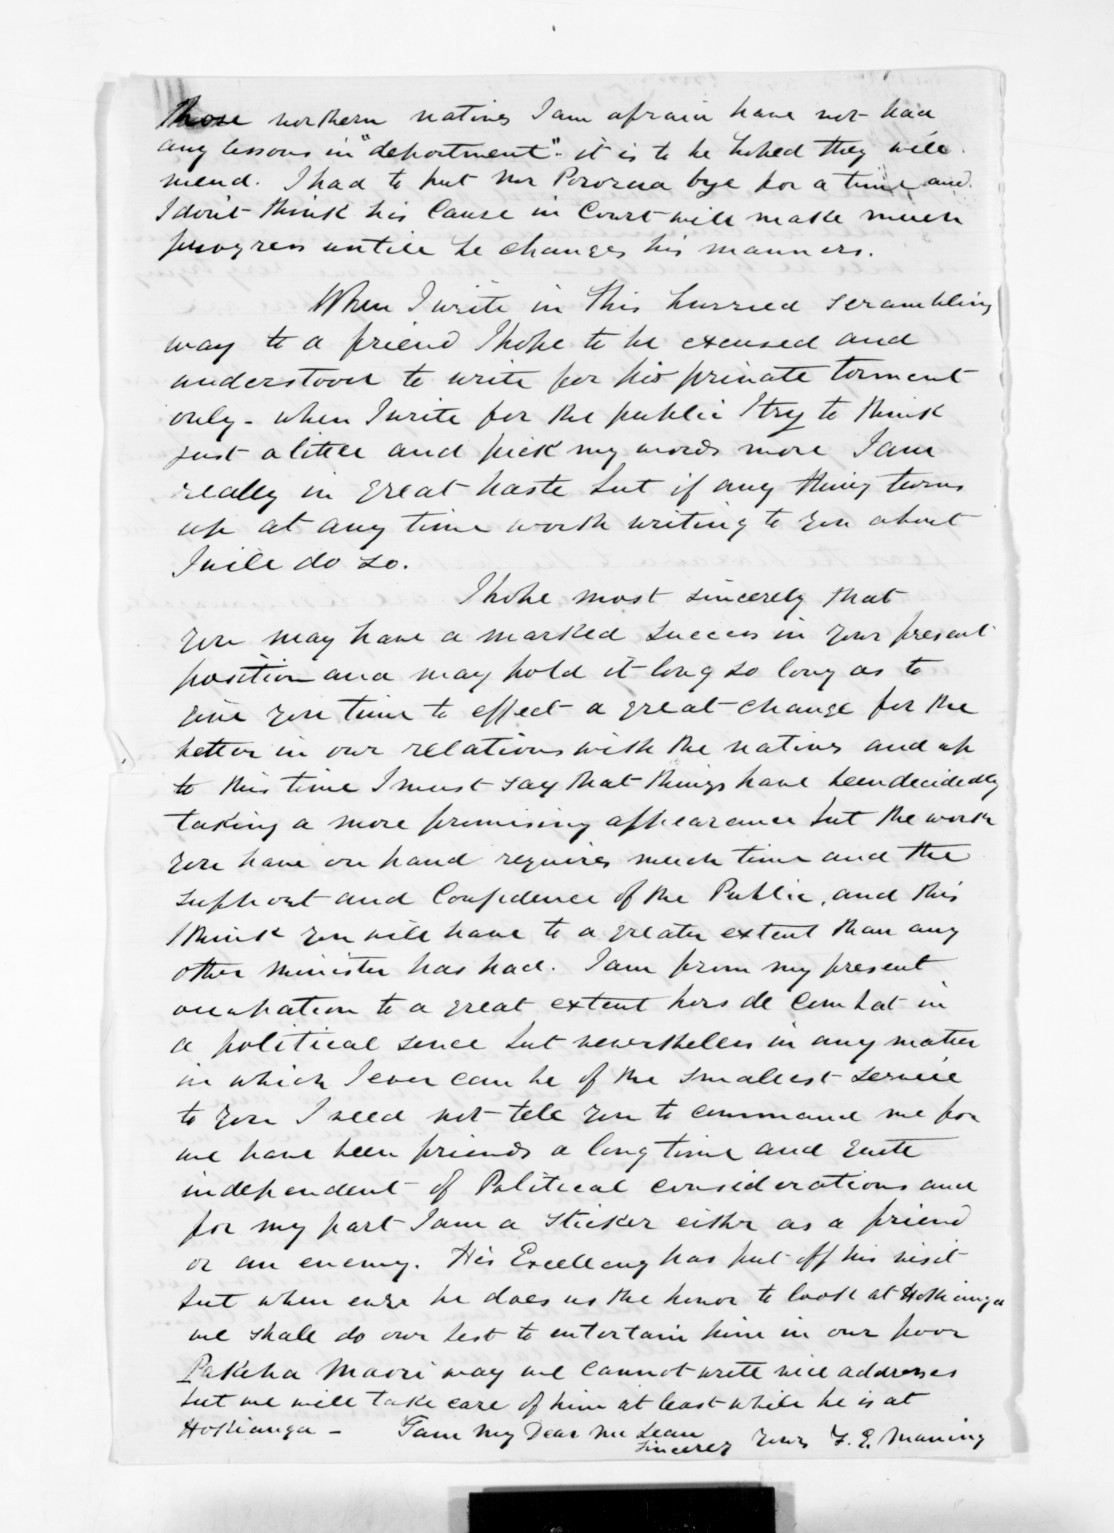 Those northern natives I am afraid have not had
any lessons in "deportment". it is to be hoped they will
mend. I had to put Mr Pororua bye for a time and
I don't think his cause in Court will make much
progress untill he changes his manners.
When I write in this hurried scrambling
way to a friend I hope to be excused and
understood to write for his private torment
only - when I write for the public I try to think
just a little and pick my words more I am
really in great haste but if any thing turns
up at any time worth writing to you about
I will do so.
I hope most sincerely that
you may have a marked success in your present
position and may hold it long so long as to
give you time to effect a great change for the
better in our relations with the natives and up
to this time I must say that things have been decidedly
taking a more promising appearance but the work
you have on hand requires much time and the
support and Confidence of the Public, and this
I think you will have to a greater extent than any
other minister has had. I am from my present
occupation to a great extent hors de combat in
a political sence but nevertheless in any matter
in which I ever can be of the smallest service
to you I need not tell you to command me for
we have been friends a long time and quite
independent of Political considerations and
for my part I am a sticker either as a friend
or an enemy. His Excellency has put off his visit
but when ever he does us the honor to look at Hokianga
we shall do our best to entertain him in our poor
Pakeha Maori way we cannot write nice addresses
but we will take care of him at least while he is at
Hokianga - I am My Dear Mc Lean
Sincerely Yours F. E. Maning